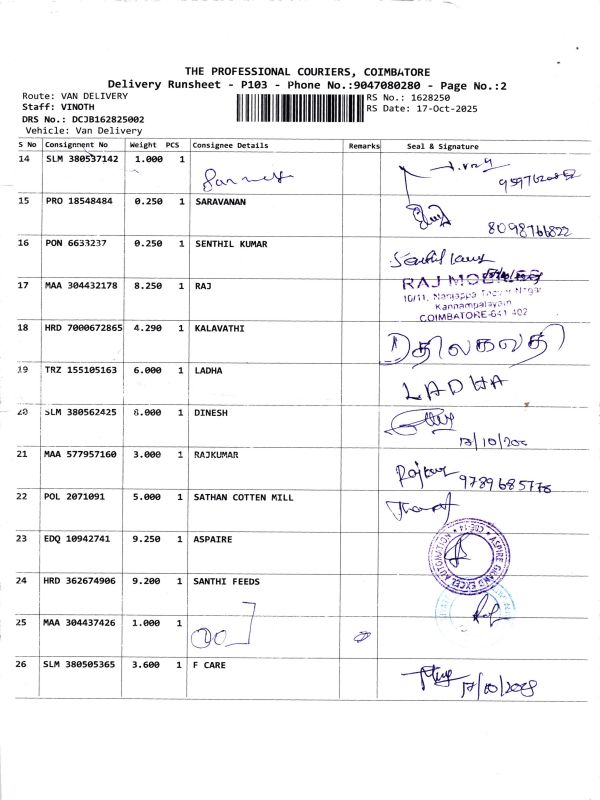 THE PROFESSIONAL COURIERS, COIMBATORE
Delivery Runsheet - P103 - Phone No.:9047080280 - Page No.:2
Route: VAN DELIVERY
Staff: VINOTH
DRS No.: DCJB162825002
Vehicle: Van Delivery
RS No.: 1628250
RS Date: 17-Oct-2025
S No Consignment No Weight PCS Consignee Details Remarks Seal & Signature
14 SLM 380537142 1.000 1
15 PRO 18548484 0.250 1 SARAVANAN 8098766822
16 PON 6633237 0.250 1 SENTHIL KUMAR Senthil kumar
17 MAA 304432178 8.250 1 RAJ
RAJ
10/11, Nanjappa Nagar
Kannampalayam
COIMBATORE-641 402
18 HRD 7000672865 4.290 1 KALAVATHI
19 TRZ 155105163 6.000 1 LADHA LADHA
20 SLM 380562425 8.000 1 DINESH
21 MAA 577957160 3.000 1 RAJKUMAR Rajkumar 9789685778
22 POL 2071091 5.000 1 SATHAN COTTEN MILL
23 EDQ 10942741 9.250 1 ASPAIRE
ASPIRE GRAND EXCEL AUTOMATION CBE-14
24 HRD 362674906 9.200 1 SANTHI FEEDS
25 MAA 304437426 1.000 1
26 SLM 380505365 3.600 1 F CARE